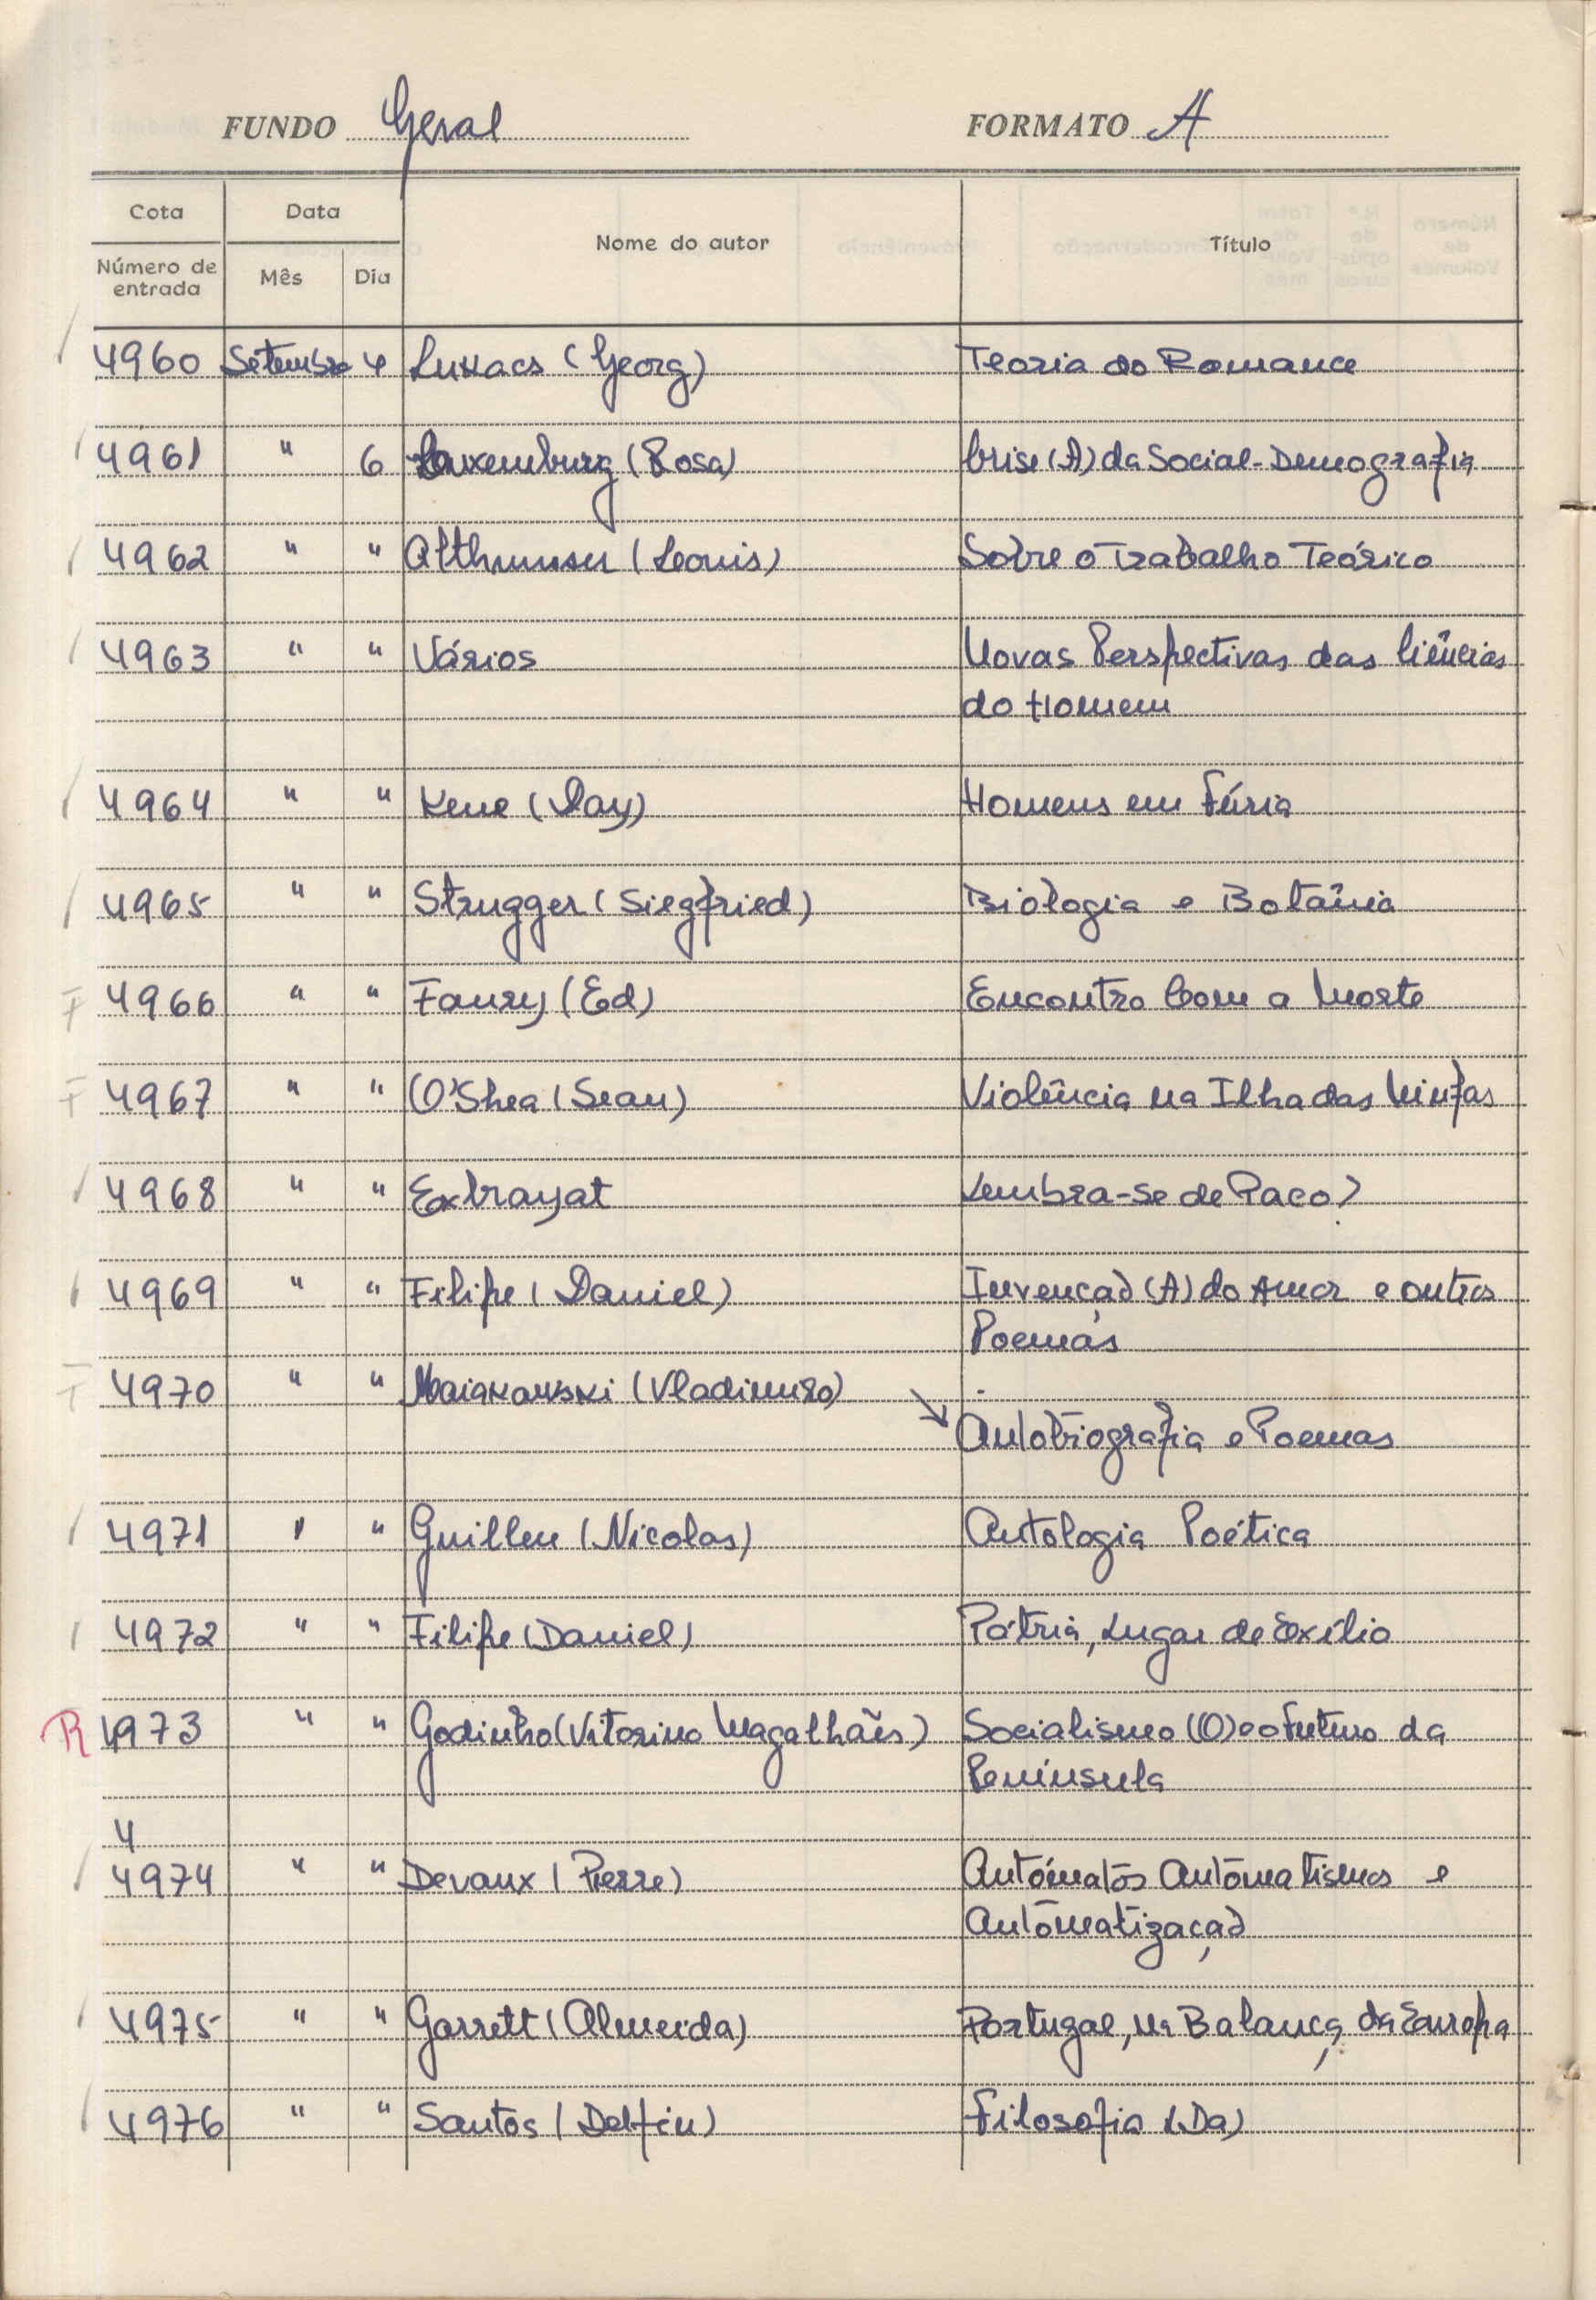 FUNDO Geral FORMATO A
Cota Data Nome do autor Título
Número de entrada Mês Dia
4960 Setembro 4 Lukacs (Georg) Teoria do Romance
4961 " 6 Luxemburg (Rosa) Crise (A) da Social-Demografia
4962 " " (Louis) Sobre o Trabalho Teórico
4963 " " Vários Novas Perspectivas das Ciências
do Homem
4964 " " Kene (Day) Homens em Fúria
4965 " " Strugger (Siegfried) Biologia e Botânia
F 4966 " " Faury (Ed) Encontro Com a Morte
F 4967 " " O'Shea (Sean) Violência na Ilha das Ninfas
4968 " " Exbrayat Lembra-se de Paco?
4969 " " Filipe (Daniel) Invenção (A) do Amor e outros
Poemas
4970 " " Maiakowski (Vladimiro)
Autobiografia e Poemas
4971 " " Guillen (Nicolas) Antologia Poética
4972 " " Filipe (Daniel) Pátria, Lugar de Exílio
R 4973 " " Godinho (Vitorino Magalhães) Socialismo (O) e o Futuro da
Península
4
4974 " " Devaux (Pierre) Autómatos Automatismos e
Automatização
4975 " " Garrett (Almeida) Portugal, na Balança da Europa
4976 " " Santos (Delfin) Filosofia (Da)